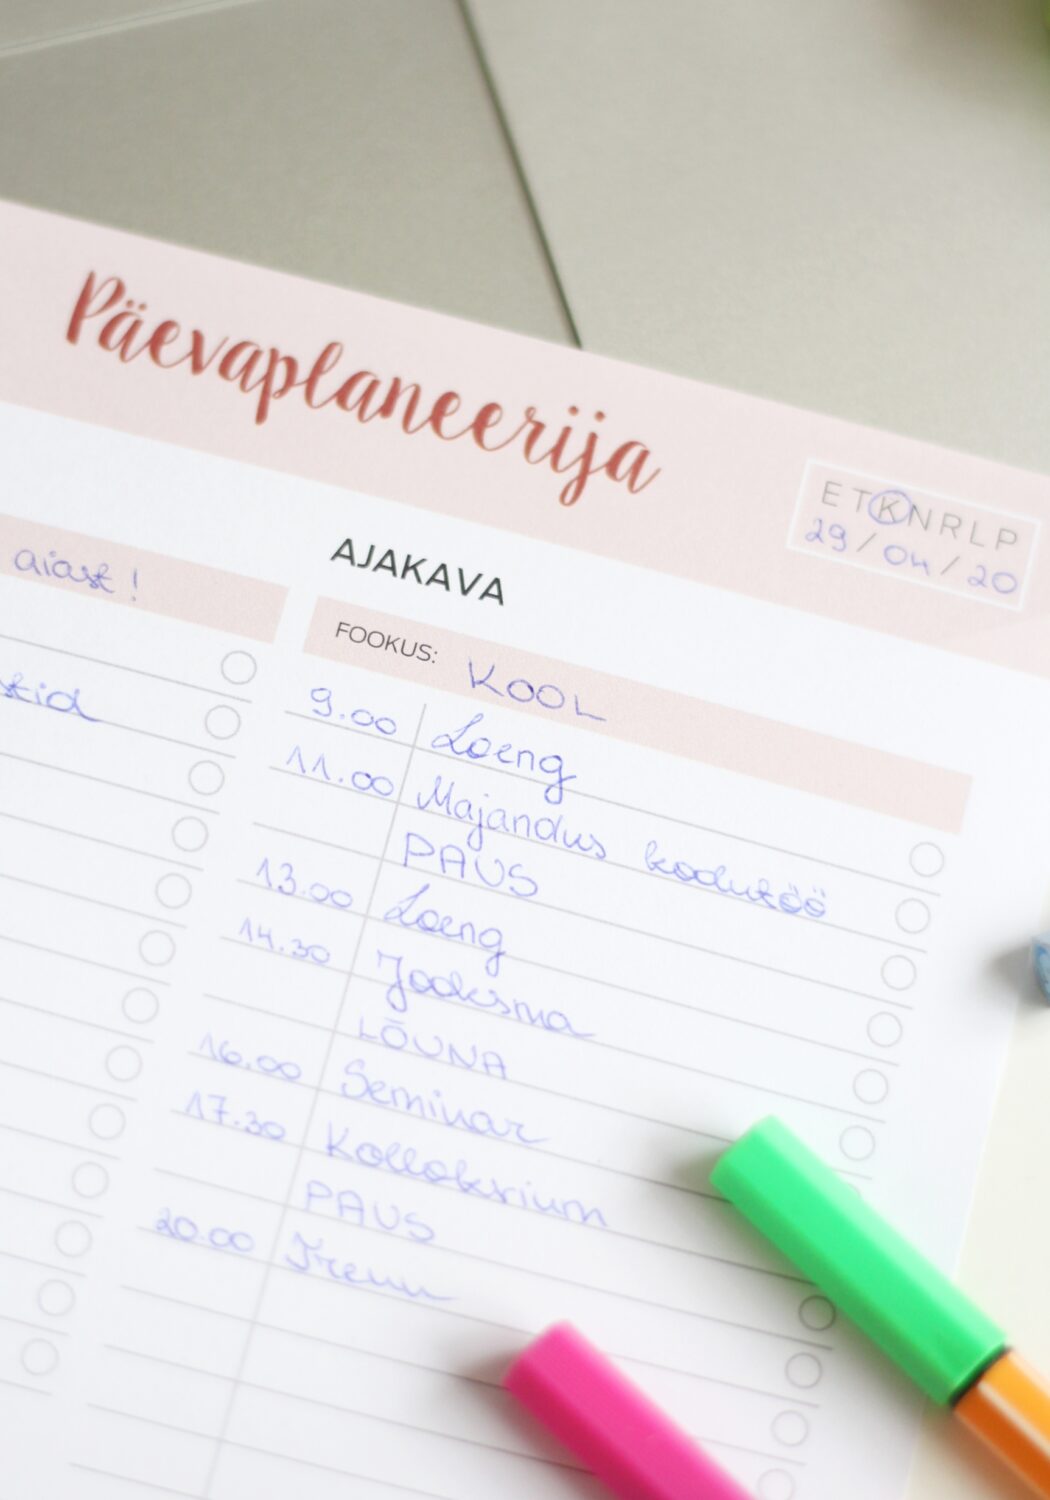 Päevaplaneerija
E T K N R L P
29 / 04 / 20
aiast !
AJAKAVA
FOOKUS: KOOL
9.00 Loeng
11.00 Majandus kodutöö
PAUS
13.00 Loeng
14.30 Jooksma
LÕUNA
16.00 Seminar
17.30 Kollokvium
PAUS
20.00 Trenn